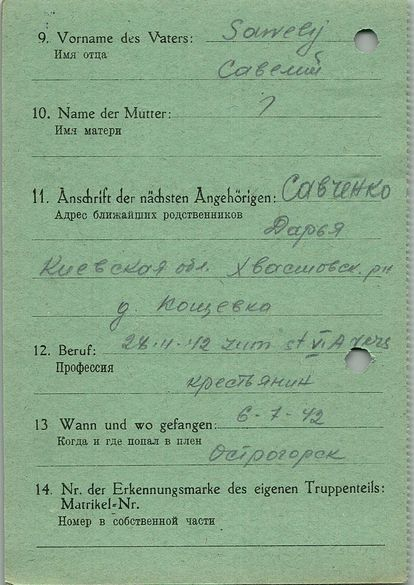 9. Vorname des Vaters: Sawelij
Имя отца
Савелий
10. Name der Mutter: ?
Имя матери
11. Anschrift der nächsten Angehörigen: Савченко
Адрес ближайших родственников
Дарья
Киевская обл. Хвастовск. рн
д. Кощевка
12. Beruf: 28.11.42 zum st VI A vers
Профессия
крестьянин
13 Wann und wo gefangen: 6-7-42
Когда и где попал в плен
Острогорск
14. Nr. der Erkennungsmarke des eigenen Truppenteils:
Matrikel-Nr.
Номер в собственной части